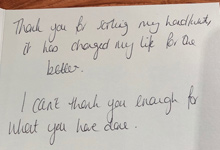 Thank you for sorting my handwriting
it has changed my life for the
better.
I can't thank you enough for
what you have done.